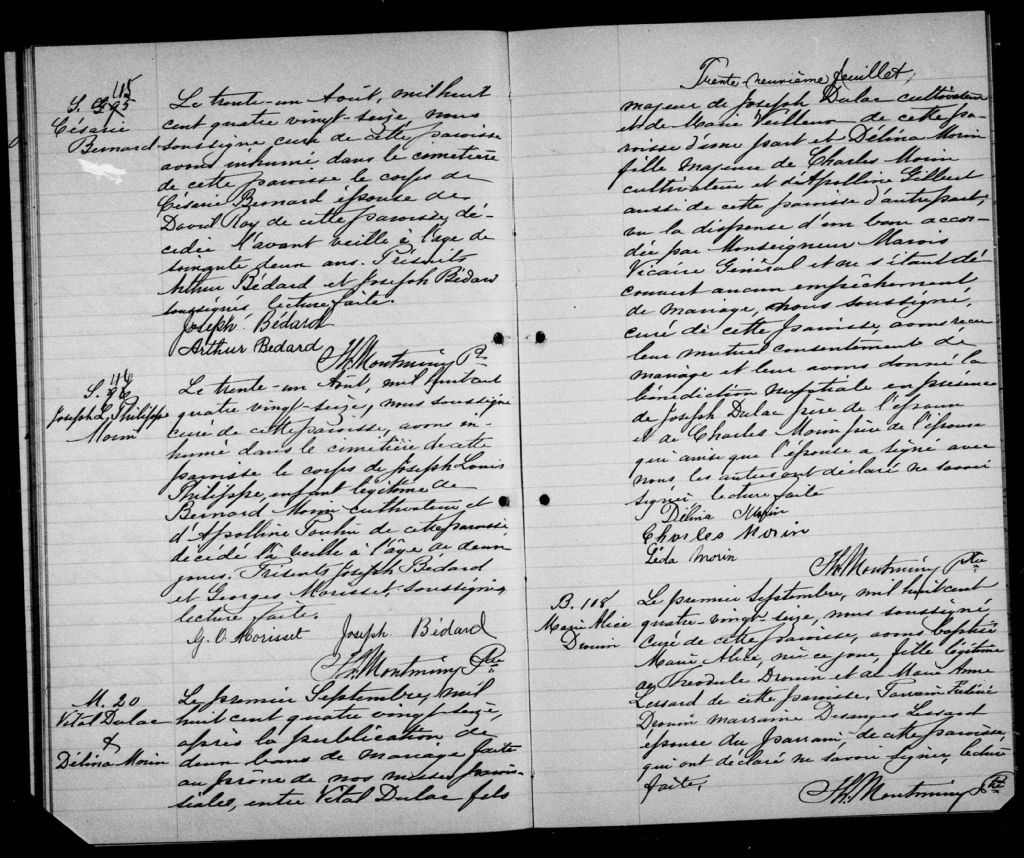 115
S. 95
Césarie
Bernard
Le trente-un Août, mil huit
cent quatre vingt-seize, nous
soussigné curé de cette paroisse
avons inhumé dans le cimetière
de cette paroisse le corps de
Césarie Bernard épouse de
David Roy de cette paroisse, dé-
cédée l'avant veille à l'age de
soixante deux ans. Présents
Arthur Bédard et Joseph Bédard
soussignés lecture faite.
Joseph Bédard
Arthur Bedard
Th. Montminy Ptre
116
S. 96
Joseph L. Philippe
Morin
Le trente-un Août, mil huit cent
quatre vingt-seize, nous soussigné
curé de cette paroisse, avons in-
humé dans le cimetière de cette
paroisse le corps de Joseph Louis
Philippe, enfant légitime de
Bernard Morin cultivateur et
d'Apolline Poulin de cette paroisse
décédé la veille a l'âge de deux
jours. Présents Joseph Bédard
et Georges Morisset soussignés
lecture faite.
G. O. Morisset Joseph Bédard
Th. Montminy Ptre
M. 20
Vital Dulac
&
Délina Morin
Le premier Septembre, mil
huit cent quatre vingt-seize,
après la publication de
deux bans de mariage faite
au prône de nos messes parois-
siales, entre Vital Dulac fils
Trente-neuvième feuillet,
majeur de Joseph Dulac cultivateur
et de Marie Veilleux de cette pa-
roisse d'une part et Délina Morin
fille majeure de Charles Morin
cultivateur et d'Apolline Gilbert
aussi de cette paroisse d'autre part,
vu la dispense d'un banc accor-
dée par Monseigneur Marois
Vicaire Général et ne s'étant dé-
couvert aucun empêchement
de mariage, nous soussigné,
curé de cette paroisse, avons recu
leur mutuel consentement de
mariage et leur avons donné la
bénédiction nuptiale en présence
de Joseph Dulac père de l'époux
et de Charles Morin père de l'épouse
qui ainsi que l'épouse a signé avec
nous, les autres ont déclaré ne savoir
signer lecture faite
Délina Morin
Charles Morin
Léda Morin
Th. Montminy Ptre
B. 118
Marie Alice
Drouin
Le premier Septembre, mil huit cent
quatre-vingt-seize, nous soussigné,
curé de cette paroisse, avons baptisé
Marie Alice, née ce jour, fille légitime
de Théodule Drouin et de Marie Anne
Lessard de cette paroisse. Parrain
Drouin marraine Desanges Lessard
épouse du parrain, de cette paroisse,
qui ont déclaré ne savoir signer, lecture
faite.
Th. Montminy Ptre